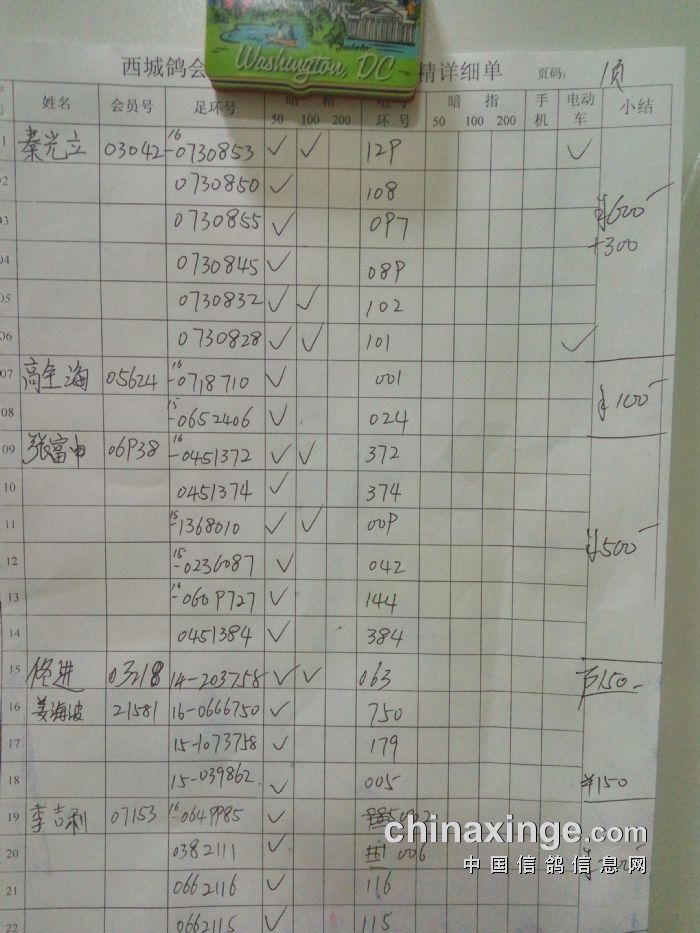 Washington, DC
西城鸽会 精详细单 页码: 1页
姓名 会员号 足环号 50 100 200 环号 暗 指 50 100 200 手机 电动车 小结
1 秦光立 03042 16-0730853 ✓ ✓ 129 ✓
02 0730850 ✓ 108
03 0730855 ✓ 097 ¥600-
+300
04 0730845 ✓ 089
05 0730832 ✓ ✓ 102
06 0730828 ✓ ✓ 101 ✓
07 高全海 05624 16-0718710 ✓ 001
08 15-0652406 ✓ 024 ¥100-
09 张富中 06938 16-0451372 ✓ ✓ 372
10 0451374 ✓ 374
11 15-1368010 ✓ ✓ 009
12 15-0236087 ✓ 042 ¥500-
13 16-0609727 ✓ 144
14 0451384 ✓ 384
15 佟进 03218 14-203758 ✓ ✓ 063 ¥150-
16 姜海波 21581 16-0666750 ✓ 750
17 15-1073758 ✓ 179
18 15-039862 ✓ 005 ¥150
19 李吉利 07153 16-0649985 ✓
20 0382111 ✓ 006
21 0662116 ✓ 116
22 0662115 ✓ 115
chinaxinge.com
中国信鸽信息网